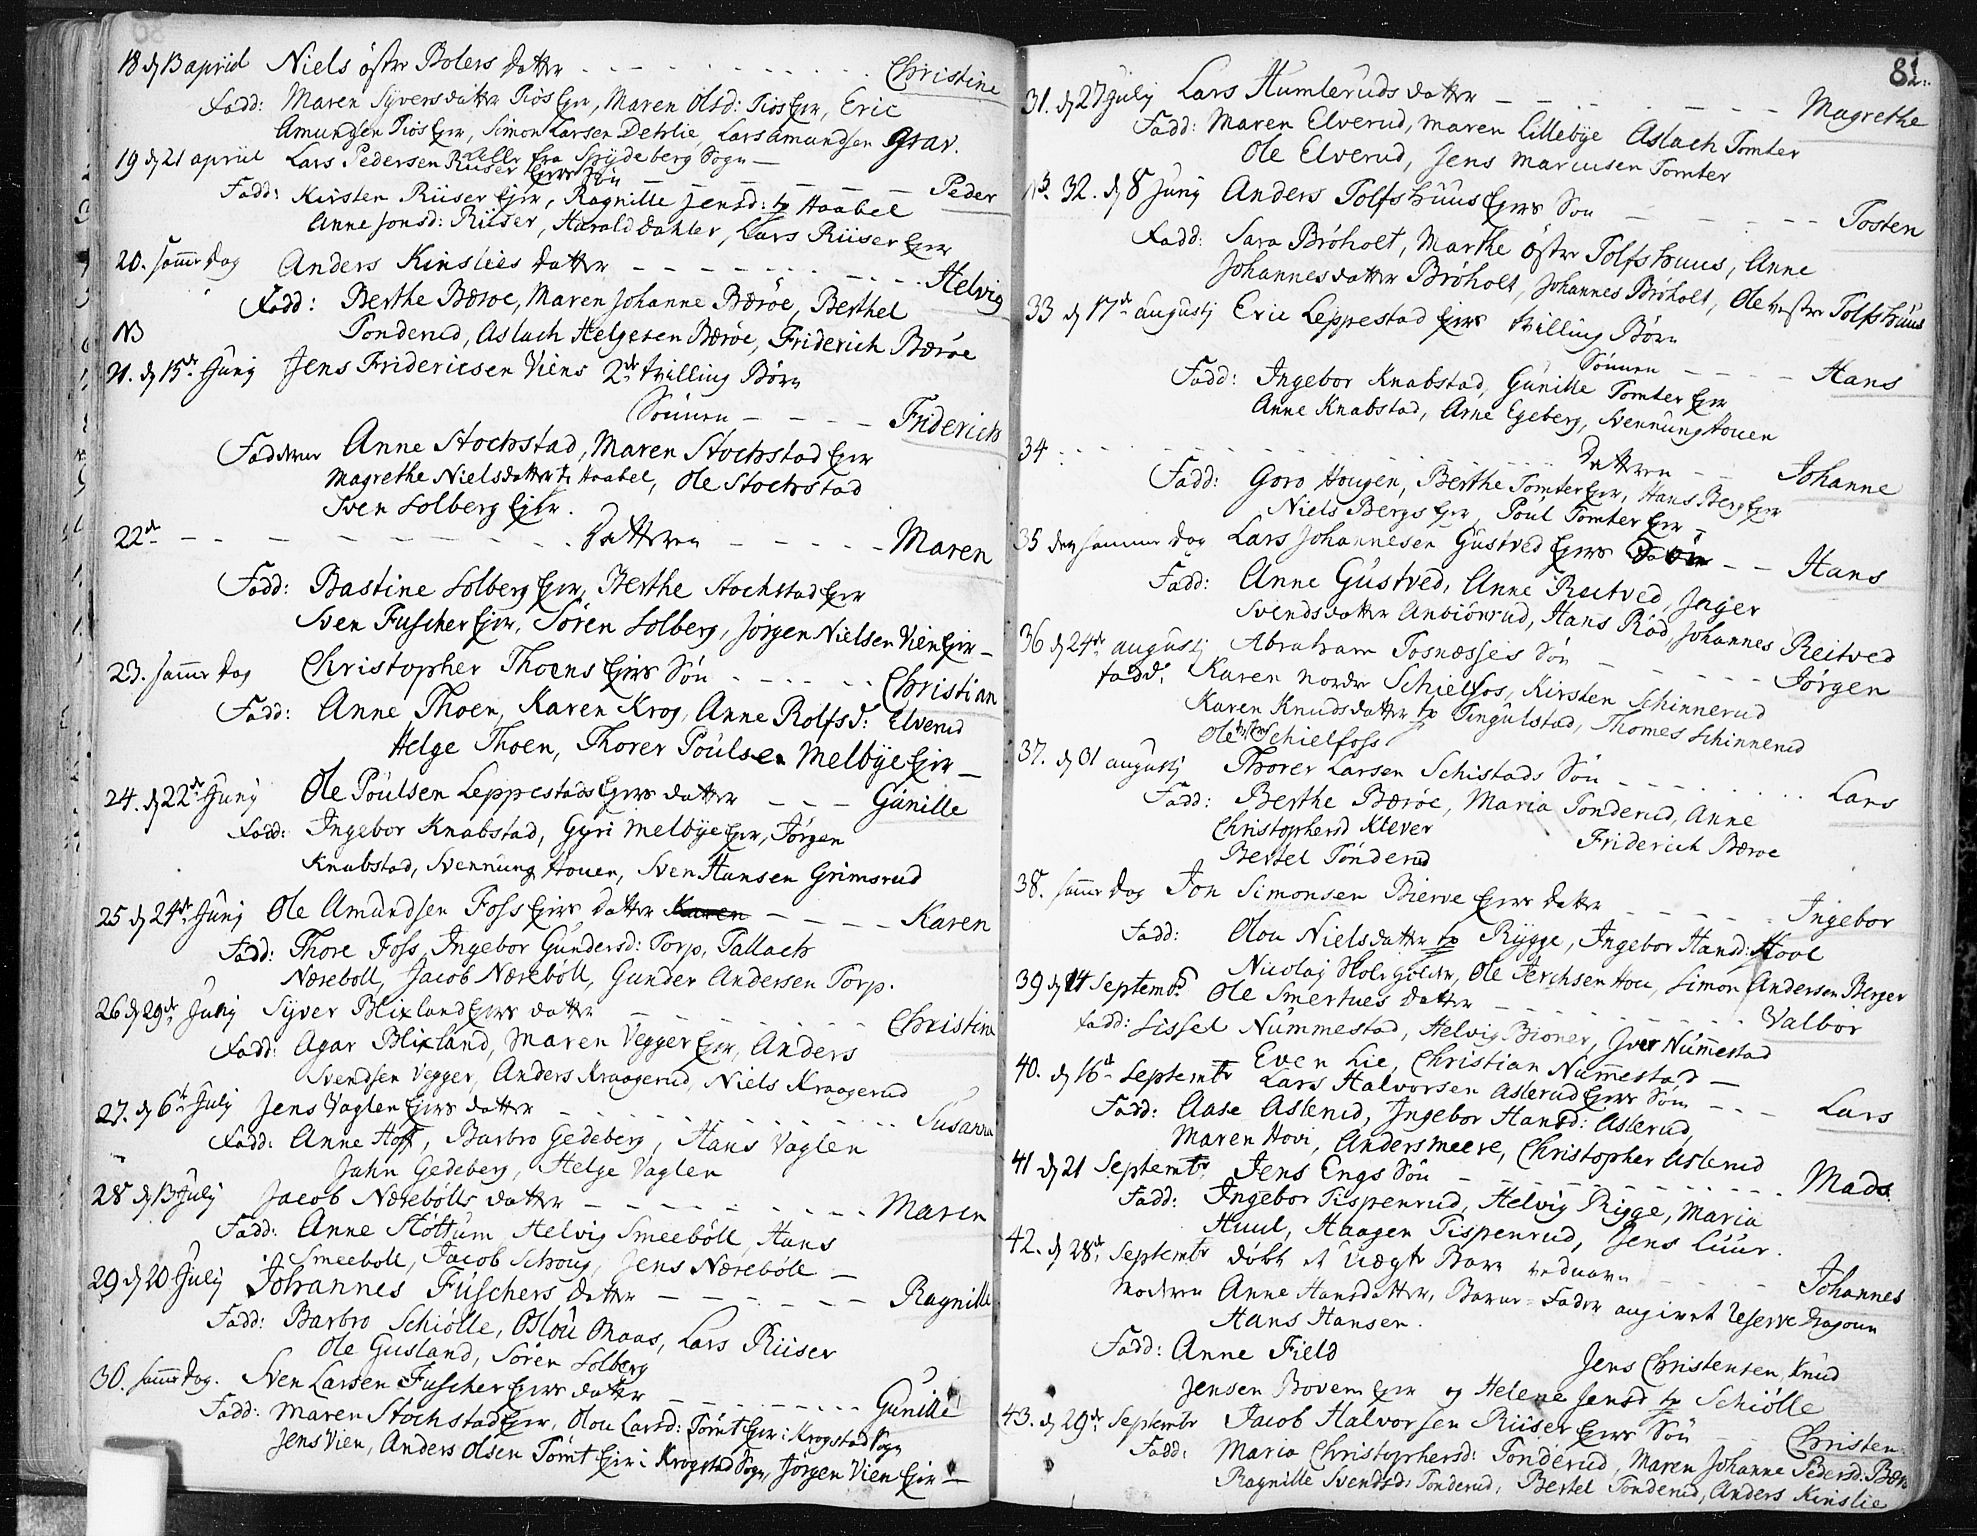 18 d 13 april Niels östre Bolers datter - - - - Christine
Fadd: Maren Syversdatter Tiös Ejer, Maren Olsd: Tiös Ejer, Eric
Amundsen Tiös Ejer, Simon Larsen Dehlie, Lars Amundsen Grav.
19 d 21 apriil Lars Pedersen Riiser eller fra Spydeberg Sogn -
Ejers Søn - - - - Peder
Fadd: Kirsten Riiser Ejer, Ragnille Jensd: tp Haabel
Anne Jonsd: Riiser, Harald Dahler, Lars Riiser Ejer
20. samme Dag Anders Kinslies datter - - - - Helvig
Fadd: Berthe Bærøe, Maren Johanne Bærøe, Berthel
NB Tonderud, Aslach Helgesen Bærøe, Friderich Bærøe
21. d 15de Junij Jens Fridericsen Viens 2de tvilling Børn
Sønnen - - - - Friderich
Faddere Anne Stochstad, Maren Stochstad Ejer
Magrethe Nielsdatter tp Haabel, Ole Stochstad
Sven Solberg Ejer.
22de - - - - Datteren - - - - Maren
Fadd: Bastine Solberg Ejer, Berthe Stochstad Ejer
Sven Fuscher Ejer, Søren Solberg, Jørgen Nielsen Vien Ejer -
23. samme Dag Christopher Thoens Ejers Søn - - - - Christian
Fadd: Anne Thoen, Karen Krog, Anne Rolfsd: Elverud
Helge Thoen, Thorer Poulsen Melbye Ejer -
24. d 22de Junij Ole Poulsen Leppestads Ejers datter - - - Gunille
Fadd: Ingebor Knabstad, Gyri Melbye Ejer, Jørgen
Knabstad, Svennung Houen, Sven Hansen Grimsrud
25 d 24de Junij Ole Amundsen Foss Ejers datter Karen - - - - Karen
Fadd: Thore Foss, Ingebor Gundersd: Torp, Tallach
Næreboll, Jacob Næreböll, Gunder Andersen Torp.
26 d 29de Junij Syver Blixland Ejers datter - - - - Christine
Fadd: Agar Blixland, Maren Vegger Ejer, Anders
Svendsen Vegger, Anders Kraagerud, Niels Kraagerud
27. d 6te July Jens Vaglen Ejers datter - - - - Susanna
Fadd: Anne Hoff, Barbro Gedeberg, Hans Vaglen
Jahn Gedeberg, Helge Vaglen
28 d 13 Julij Jacob Nærebölls datter - - - - Maren
Fadd: Anne Støttum, Helvig Smeeböll, Hans
Smeeboll, Jacob Schoug, Jens Næreböll -
29 d 20 Julij Johannes Fuschers datter - - - - Ragnille
Fadd: Barbro Schiölle, Olou Maas, Lars Riiser
Ole Gusland, Søren Solberg
30. samme Dag. Sven Larsen Fuscher Ejers datter - - - - Gunille
Fadd: Maren Stochstad Ejer, Olou Larsd: Tömt Ejer i Krogstad Sogn
Jens Vien, Anders Olsen Tömt Ejer i Krogstad Sogn, Jørgen Vien Ejer -
81.
31. d 27 Julij Lars Humleruds datter - - - - Magrethe
Fadd: Maren Elverud, Maren Lillebye Aslach Tomter
Ole Elverud, Jens Marcusen Tomter
NB 32. d 8 Junij Anders Tolfshuus Ejers Søn - - - - Tosten
Fadd: Sara Bröholt, Marthe östre Tolfshuus, Anne
Johannesdatter Bröholt, Johannes Bröholt, Ole vestre Tolfshuus
33 d 17de augustj Eric Leppestad Ejers tvilling Børn
Sønnen - - - - Hans
Fadd: Ingebor Knabstad, Gunille Tomter Ejer
Anne Knabstad, Arne Egeberg, Svennung Houen
34 - - - - Datteren - - Johanne
Fadd: Goro Hougen, Berthe Tomter Ejer, Hans Berg Ejer
Niels Bergs Ejer, Poul Tomter Ejer -
35 den samme Dag Lars Johannesen Gustved Ejers Søn - - Hans
Fadd: Anne Gustved, Anne Reitved, Inger
Svendsdatter Anbiönrud, Hans Röd, Johannes Reitved
36 d 24de augustj Abraham Tosnæsses Søn - - - - Jörgen
Fadd: Karen nordre Schielfos, Kirsten Schinnerud
Karen Knudsdatter tp Tingulstad, Thomes Schinnerud
Ole Schielfoss
37. d 31 augustj Thorer Larsen Schistads Søn - - - - Lars
Fadd: Berthe Bærøe, Maria Tonderud, Anne
Christophersd Klever Friderich Bærøe
Bertel Tönderud
38. samme Dag Jon Simonsen Bierve Ejers datter - - - - Ingebor
Fadd: Olou Nielsdatter tp Rygge, Ingebor Hansd: Hool
Nicolaj Holigilder, Ole Terchsen Hou, Simon Andersen Berger
39 d 14 Septembr Ole Smertues datter - - - - Valbor
Fadd: Sissel Nummestad, Helvig Bioner, Iver Nummestad
Even Lie, Christian Nummestad -
40. d 16de Septembr Lars Halvorsen Aslerud Ejers Søn - - - Lars
Fadd: Aase Aslerud, Ingebor Hansd: Aslerud,
Maren Hovi, Anders Meere, Christopher Aslerud
41 d 21 Septembr Jens Engs Søn - - - - Mads
Fadd: Ingebor Tispenrud, Helvig Rigge, Maria
Huul, Haagen Tispenrud, Jens Luur.
42. d 28de Septembr döbt et Uægte Barn ved navn - - - - Johannes
Moderen Anne Hansdatter, Barne-Fader angivet Reserve Dragoun
Hans Hansen.
Fadd: Anne Field Jens Christensen, Knud
Jensen Bovem Ejer og Helene Jensd tp Schiölle
43. d 29de Septembr Jacob Halvorsen Riiser Ejers Søn - - Christen
Fadd: Maria Christophersd: Tonderud, Maren Johanne Pedersd: Bærø
Ragnille Svendsd: Tonderud, Bertel Tonderud, Anders Kinslie